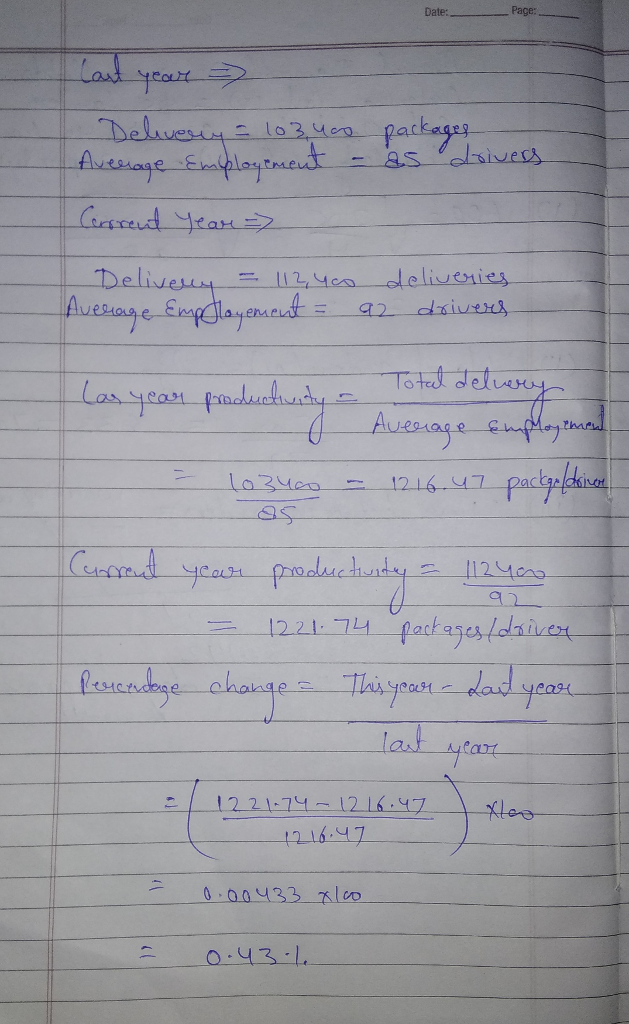 Date: Page:
Last year ⇒
Delivery = 103,400 packages
Average Employement = 85 drivers
Current Year ⇒
Delivery = 112,400 deliveries
Average Employement = 92 drivers
Las year productivity = Total delivery
Average Employement
= 103400 = 1216.47 packge/driver
85
Current year productivity = 112400
92
= 1221.74 packages/driver
Percendage change = This year - Last year
last year
= ( 1221.74 - 1216.47 ) x100
1216.47
= 0.00433 x100
= 0.43%